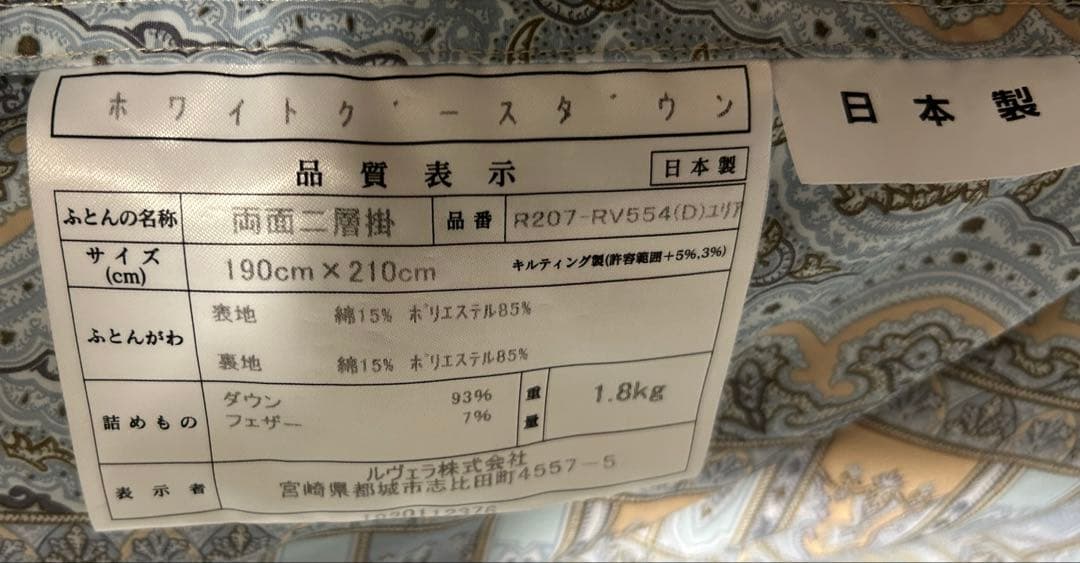 ホワイトグースダウン
日本製
品質表示
日本製
ふとんの名称 両面二層掛 品番 R207-RV554(D)ユリア
サイズ(cm) 190cm×210cm キルティング製(許容範囲+5%,3%)
ふとんがわ
表地 綿15% ポリエステル85%
裏地 綿15% ポリエステル85%
詰めもの
ダウン 93%
フェザー 7%
重量 1.8kg
表示者
ルヴェラ株式会社
宮崎県都城市志比田町4557-5